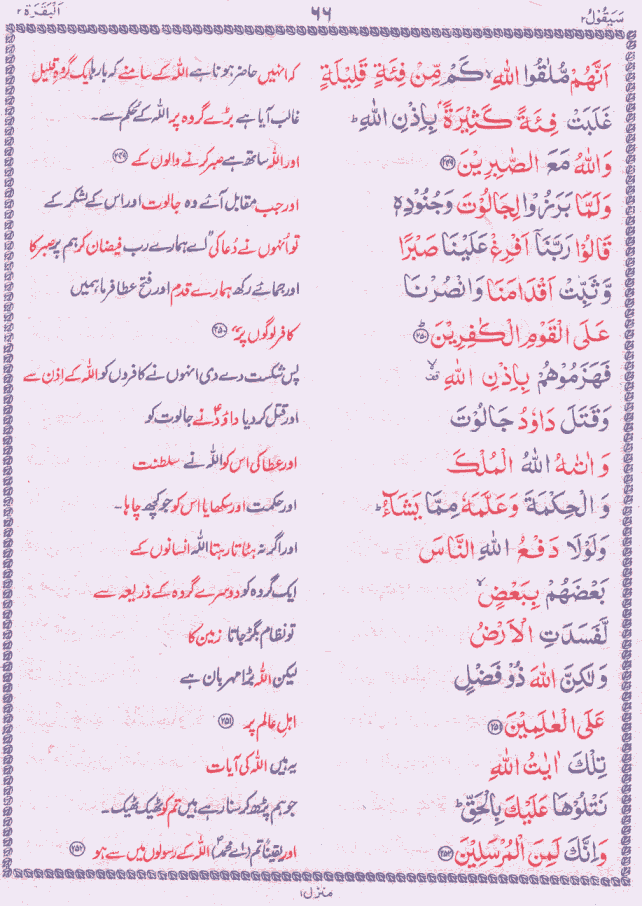 سَيَقُوْلُ ٢ ٦٦ اَلْبَقَرَة ٢
اَنَّهُمْ مُّلٰقُوا اللّٰهِ ۙ كَمْ مِّنْ فِئَةٍ قَلِيْلَةٍ کہ انہیں حاضر ہونا ہے اللہ کے سامنے کہ بارہا ایک گروہِ قلیل
غَلَبَتْ فِئَةً كَثِيْرَةًۢ بِاِذْنِ اللّٰهِ ؕ غالب آیا ہے بڑے گروہ پر اللہ کے حُکم سے۔
وَاللّٰهُ مَعَ الصّٰبِرِيْنَ ﴿۲۴۹﴾ اور اللہ ساتھ ہے صبر کرنے والوں کے ﴿۲۴۹﴾
وَلَمَّا بَرَزُوْا لِجَالُوْتَ وَجُنُوْدِهٖ اور جب مقابل آئے وہ جالوت اور اس کے لشکر کے
قَالُوْا رَبَّنَاۤ اَفْرِغْ عَلَيْنَا صَبْرًا تو اُنہوں نے دُعا کی "اے ہمارے رب فیضان کر ہم پر صبر کا
وَّثَبِّتْ اَقْدَامَنَا وَانْصُرْنَا اور جمائے رکھ ہمارے قدم اور فتح عطا فرما ہمیں
عَلَى الْقَوْمِ الْكٰفِرِيْنَ ﴿۲۵۰﴾ؕ کافر لوگوں پر" ﴿۲۵۰﴾
فَهَزَمُوْهُمْ بِاِذْنِ اللّٰهِ ۙ پس شکست دے دی انہوں نے کافروں کو اللہ کے اِذن سے
وَقَتَلَ دَاوٗدُ جَالُوْتَ اور قتل کر دیا داوٗدؑ نے جالوت کو
وَاٰتٰىهُ اللّٰهُ الْمُلْكَ اور عطا کی اس کو اللہ نے سلطنت
وَالْحِكْمَةَ وَعَلَّمَهٗ مِمَّا يَشَآءُ ؕ اور حکمت اور سکھایا اس کو جو کچھ چاہا۔
وَلَوْلَا دَفْعُ اللّٰهِ النَّاسَ اور اگر نہ ہٹاتا رہتا اللہ انسانوں کے
بَعْضَهُمْ بِبَعْضٍ ۙ ایک گروہ کو دوسرے گروہ کے ذریعہ سے
لَّفَسَدَتِ الْاَرْضُ تو نظام بگڑ جاتا زمین کا
وَلٰكِنَّ اللّٰهَ ذُوْ فَضْلٍ لیکن اللہ بڑا مہربان ہے
عَلَى الْعٰلَمِيْنَ ﴿۲۵۱﴾ اہلِ عالم پر ﴿۲۵۱﴾
تِلْكَ اٰيٰتُ اللّٰهِ یہ ہیں اللہ کی آیات
نَتْلُوْهَا عَلَيْكَ بِالْحَقِّ ؕ جو ہم پڑھ کر سنا رہے ہیں تم کو ٹھیک ٹھیک۔
وَاِنَّكَ لَمِنَ الْمُرْسَلِيْنَ ﴿۲۵۲﴾ اور یقیناً تم (اے محمدؐ) اللہ کے رسولوں میں سے ہو ﴿۲۵۲﴾
منزل ۱